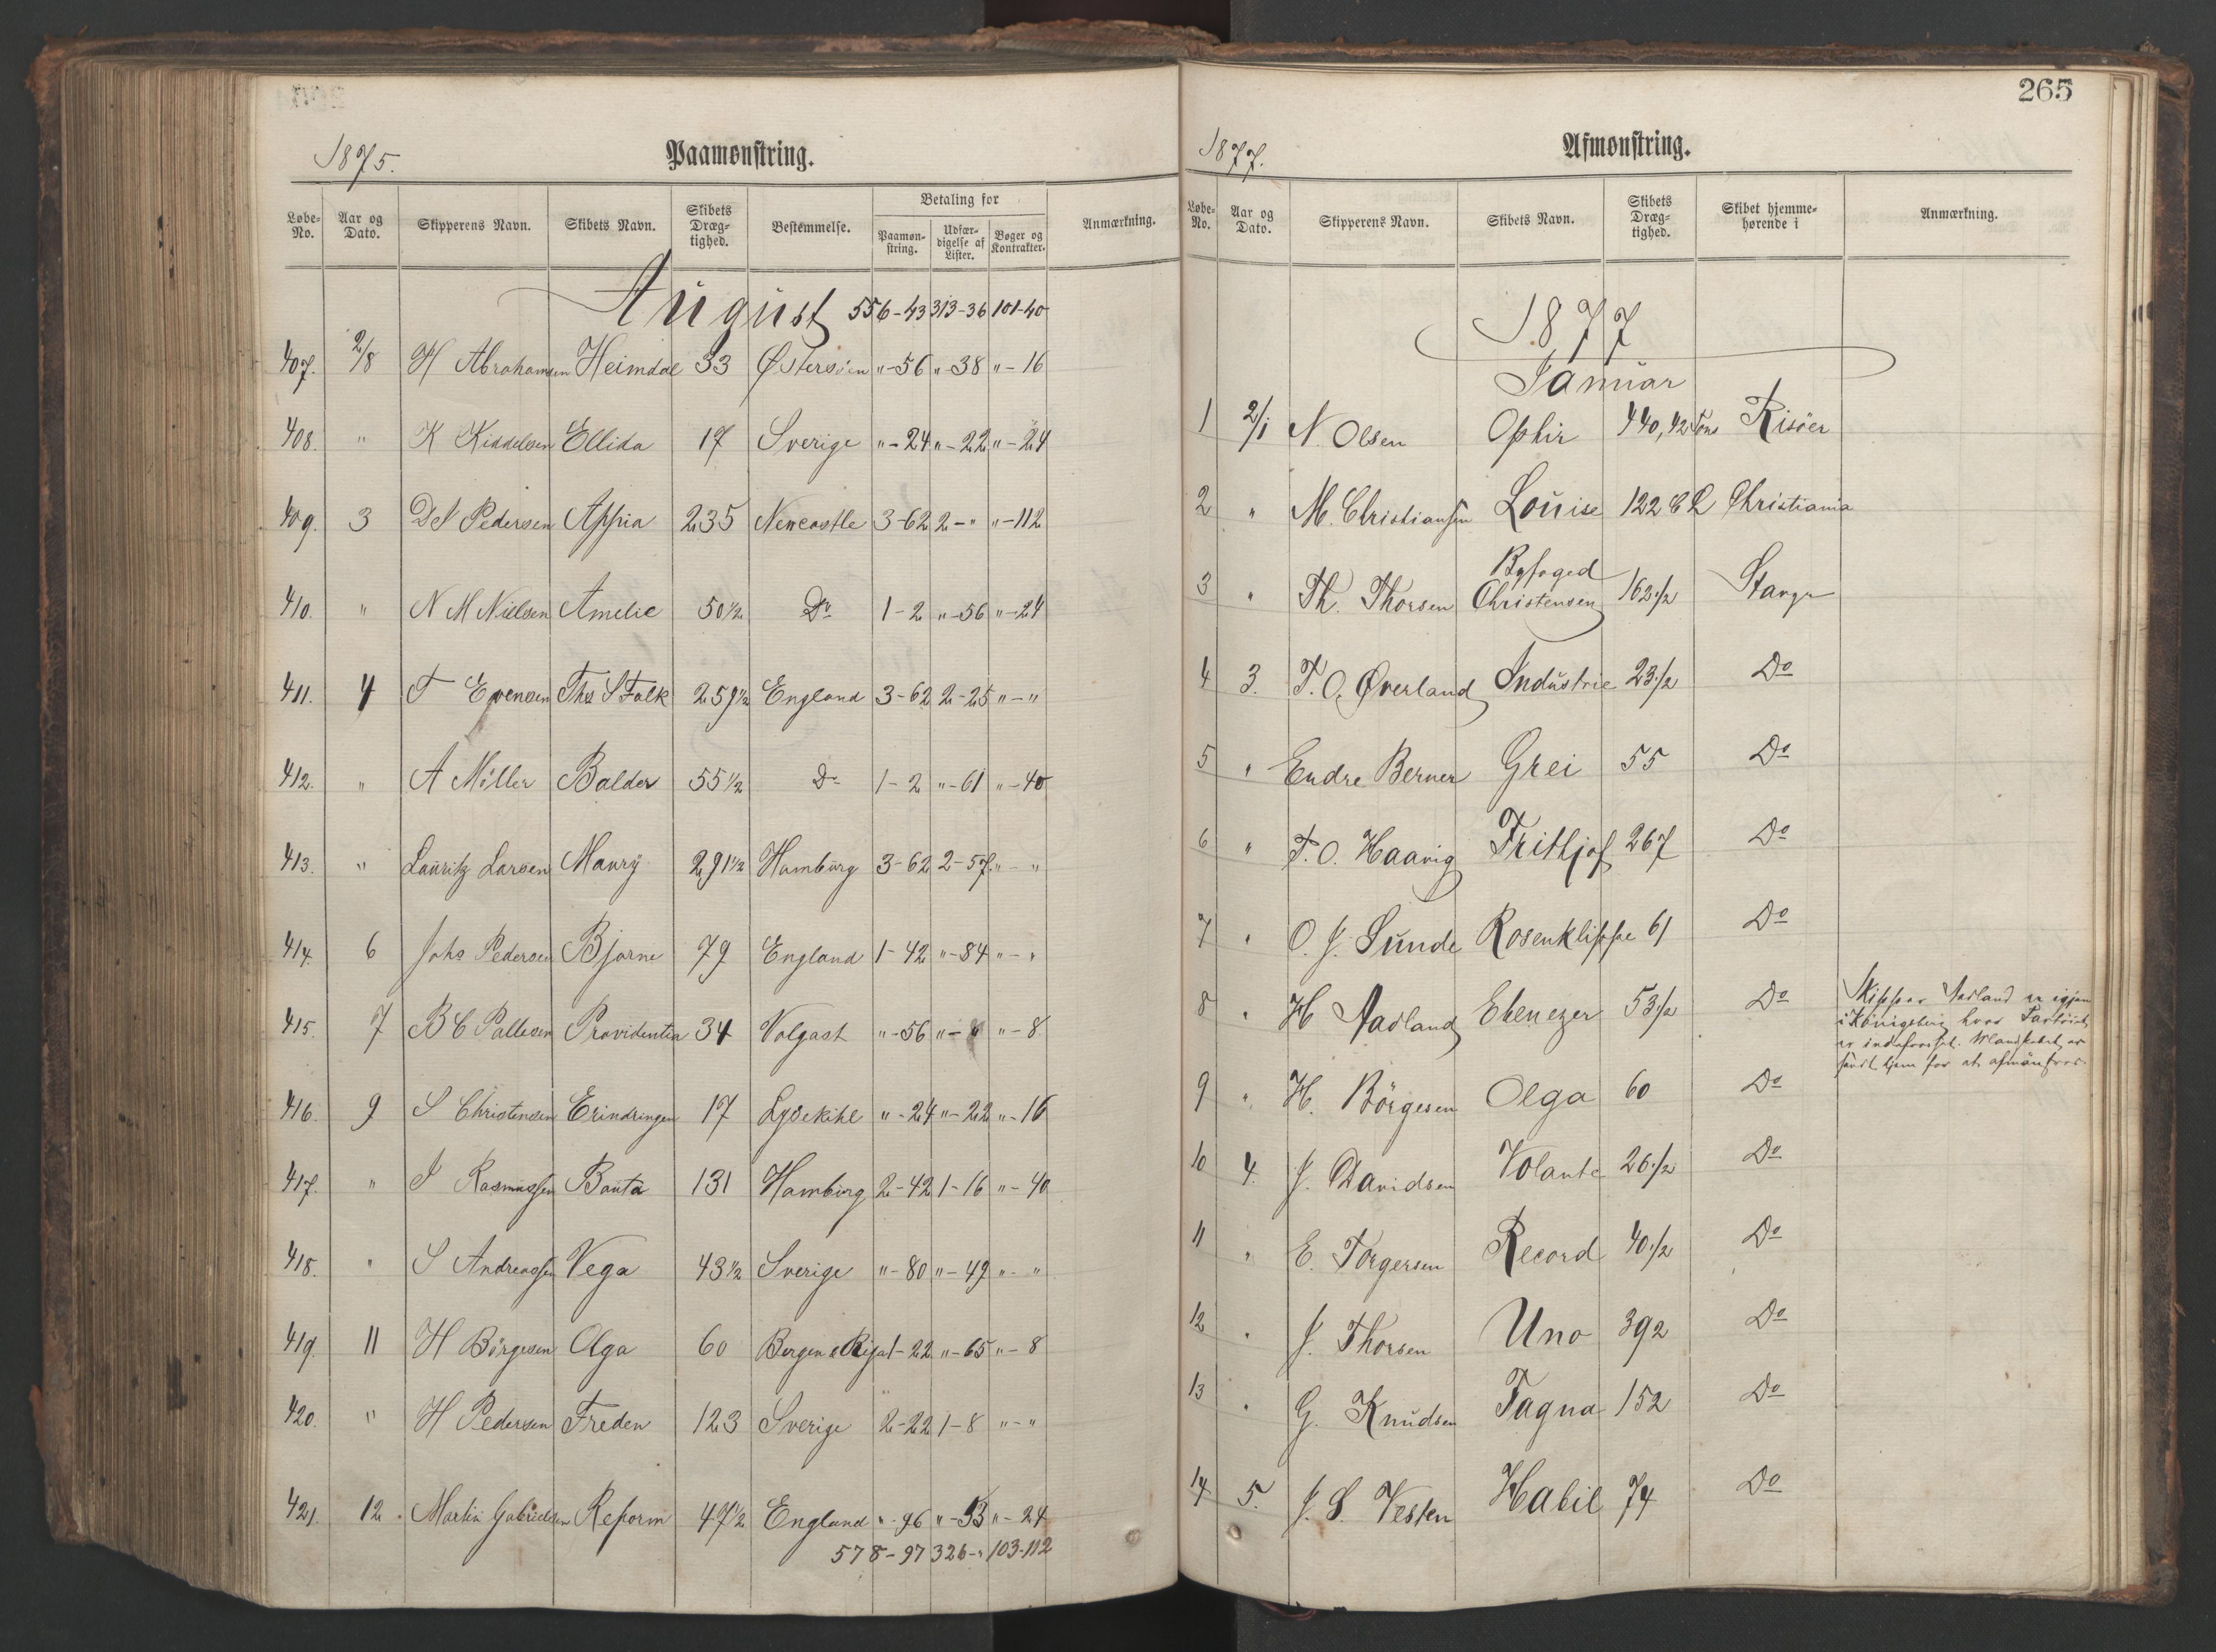 1875.
Paamønstring.
Løbe-No. Aar og Dato. Skipperens Navn. Skibets Navn. Skibets Dræg-tighed. Bestemmelse. Betaling for Paamøn-string. Udfær-digelse af Lister. Bøger og Kontrakter. Anmærkning.
August 556-43 313-36 101-40
407. 2/8 H Abrahamsen Heimdal 33 Østersöen "-56 "-38 "-16
408. " K Kiddelsen Ellida 17 Sverige "-24 "-22 "-24
409. 3 Pedersen Appia 235 Newcastle 3-62 2-" "-112
410. " N M Nielsen Amelie 50 1/2 Do 1-2 "-56 "-24
411. 4 T Evensen Ths S Falk 259 1/2 England 3-62 2-25 "-"
412. " A Möller Balder 55 1/2 Do 1-2 "-61 "-40
413. " Lauritz Larsen Maury 291 1/2 Hamburg 3-62 2-57 "-"
414. 6 Johs Pedersen Bjarne 79 England 1-42 "-84 "-"
415. 7 B C Pallesen Providentia 34 Volgast "-56 "- "-8
416. 9 S Christensen Erindringen 17 Lysekihl "-24 "-22 "-16
417. " J Rasmussen Bauta 131 Hamburg 2-42 1-16 "-40
418. " S Andreassen Vega 43 1/2 Sverige "-80 "-49 "-"
419. 11 H Börgesen Olga 60 Bergen & Riga 1-22 "-65 "-8
420. " H Pedersen Freden 123 Sverige 2-22 1-8 "-"
421. 12. Martin Gabrielsen Reform 47 1/2 England "-96 "-53 "-24
578-97 326-" 103-112
265
1877.
Afmønstring.
Løbe-No. Aar og Dato. Skipperens Navn. Skibets Navn. Skibets Dræg-tighed. Skibet hjemme-hørende i Anmærkning.
1877
Januar
1 2/1 N. Olsen Ophir 440,42 Tons Risöer
2 " M. Christiansen Louise 122 C L Christiania
3 " Th. Thorsen Byfoged Christensen 162 1/2 Stavgr
4 3. T. O. Øverland Industrie 23 1/2 Do
5 " Endre Berner Grei 55 Do
6 " T. O. Haavig Frithjof 267 Do
7 " O. J. Sunde Rosenklippe 61 Do
8 " H Aadland Ebenezer 53 1/2 Do Skipper Aadland er igjen
i Königsberg hvor Fartöiet
er indefrosset. Mandskabet er
sendt hjem for at afmönstres.
9 " H. Börgesen Olga 60 Do
10 4. J. Davidsen Volante 26 1/2 Do
11 " E. Torgersen Record 40 1/2 Do
12 " J. Thorsen Uno 392 Do
13 " G. Knudsen Fagna 152 Do
14 5. J. S. Vesten Habil 74 Do